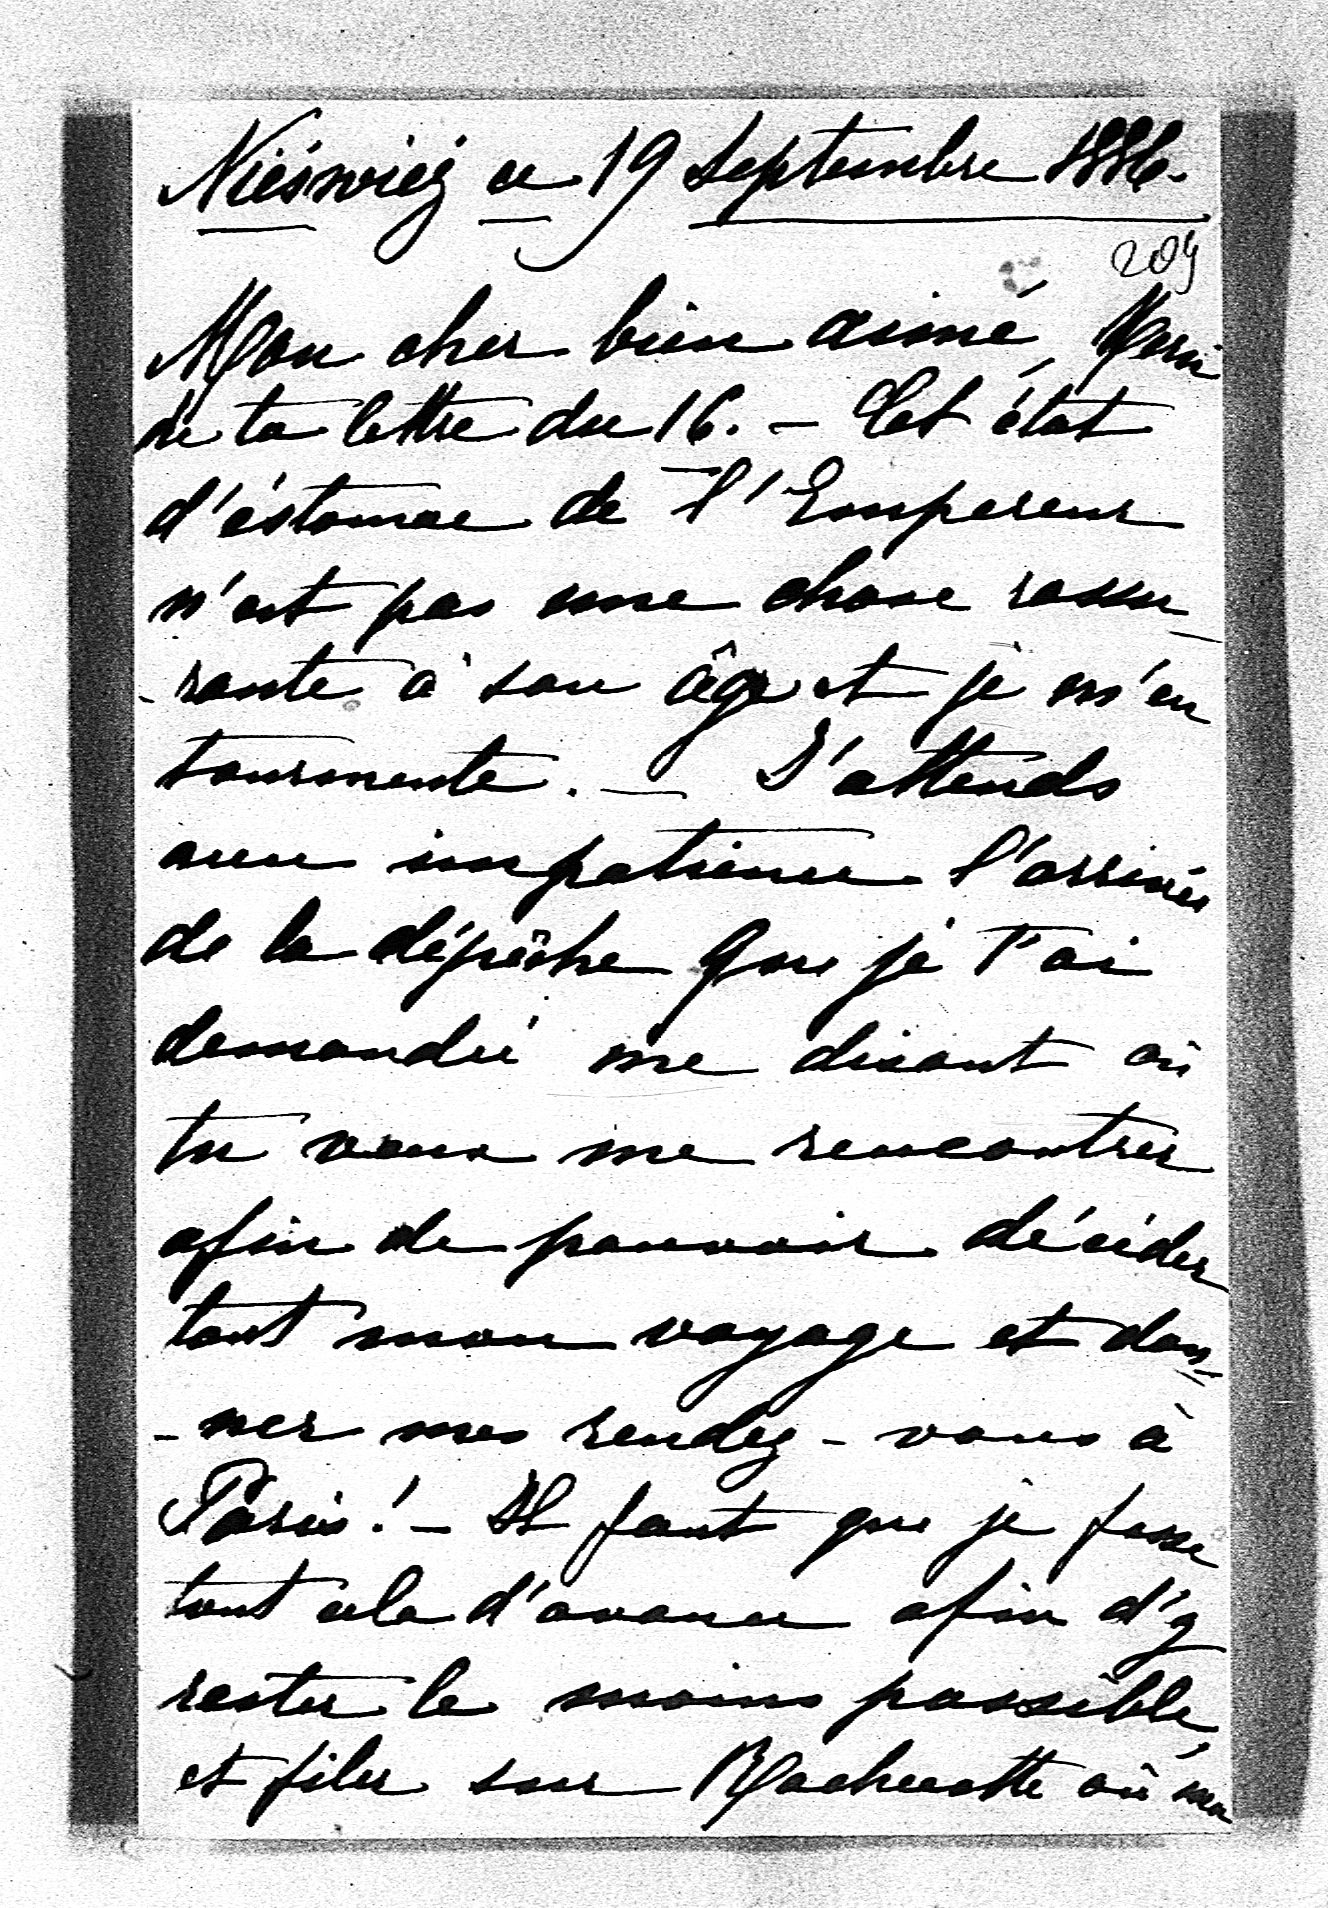 Nieświéź ce 19 Septembre 1886.
209
Mon cher bien aimé, Merci
de ta lettre du 16. — Cet état
d'éstomac de l'Empereur
n'est pas une chose rassu-
-rante à son âge et je m'en
tourmente. — J'attends
avec impatience l'arrivée
de la dépêche que je t'ai
demandée me disant où
tu veux me rencontrer
afin de pouvoir décider
tout mon voyage et don-
-ner mes rendez-vous à
Paris! — Il faut que je fasse
tout cela d'avance afin d'y
rester le moins possible,
et filer sur Rochecotte où ma